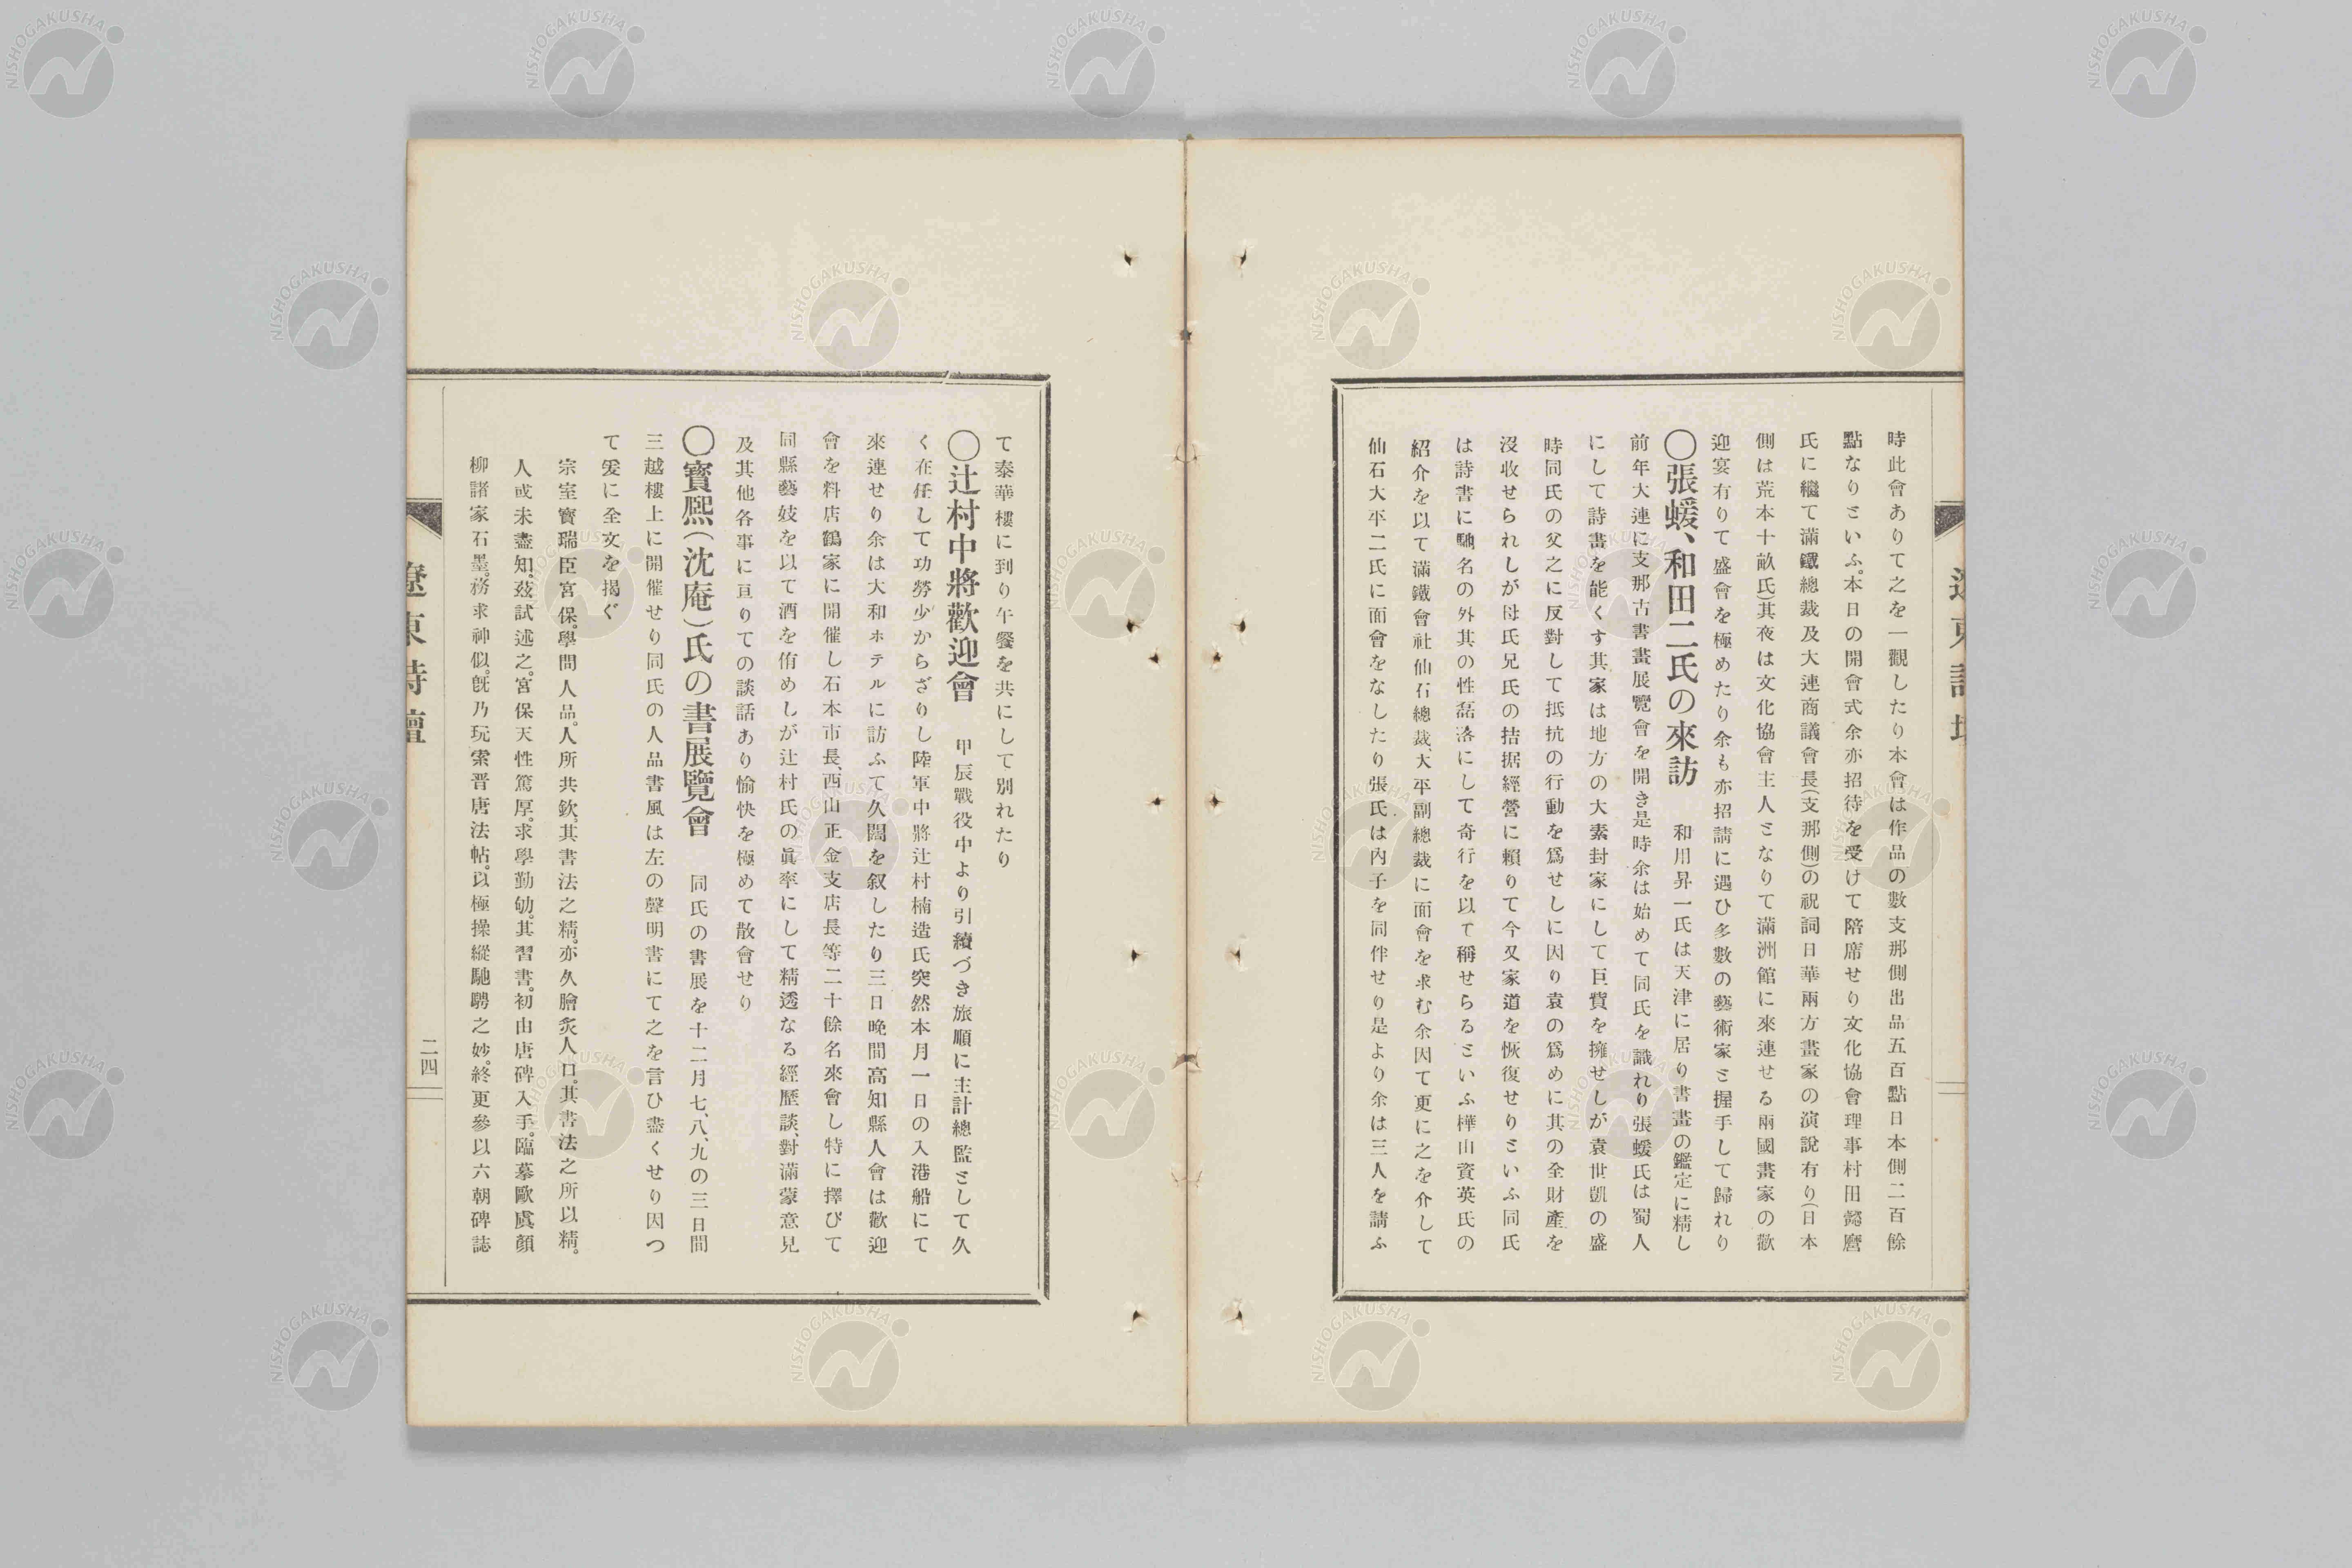 時此會ありて之を一觀したり本會は作品の數支那側出品五百點日本側二百餘
點なりといふ。本日の開會式余亦招待を受けて陪席せり文化協會理事村田懿麿
氏に繼て滿鐵總裁及大連商議會長(支那側)の祝詞日華兩方畫家の演說有り(日本
側は荒木十畝氏)其夜は文化協會主人となりて滿洲館に來連せる兩國畫家の歡
迎宴有りて盛會を極めたり余も亦招請に遇ひ多數の藝術家と握手して歸れり
〇張蝯、和田二氏の來訪 和田昇一氏は天津に居り書畫の鑑定に精し
前年大連に支那古書畫展覽會を開き是時余は始めて同氏を識れり張蝯氏は蜀人
にして詩書を能くす其家は地方の大素封家にして巨貲を擁せしが袁世凱の盛
時同氏の父之に反對して抵抗の行動を爲せしに因り袁の爲めに其の全財產を
沒收せられしが母氏兄氏の拮据經營に賴りて今又家道を恢復せりといふ同氏
は詩書に馳名の外其の性磊落にして奇行を以て稱せらるといふ樺山資英氏の
紹介を以て滿鐵會社仙石總裁、大平副總裁に面會を求む余因て更に之を介して
仙石大平二氏に面會をなしたり張氏は內子を同伴せり是より余は三人を請ふ
て泰華樓に到り午餐を共にして別れたり
〇辻村中將歡迎會 甲辰戰役中より引續づき旅順に主計總監として久
く在任して功勞少からざりし陸軍中將辻村楠造氏突然本月一日の入港船にて
來連せり余は大和ホテルに訪ふて久闊を叙したり三日晚間高知縣人會は歡迎
會を料店鶴家に開催し石本市長、西山正金支店長等二十餘名來會し特に擇びて
同縣藝妓を以て酒を侑めしが辻村氏の眞率にして精透なる經歷談對滿蒙意見
及其他各事に亘りての談話あり愉快を極めて散會せり
〇寳熈(沈庵)氏の書展覽會 同氏の書展を十二月七、八、九の三日間
三越樓上に開催せり同氏の人品書風は左の聲明書にて之を言ひ盡くせり因つ
て爰に全文を揭ぐ
宗室寳瑞臣宮保。學問人品。人所共欽。其書法之精。亦久膾炙人口。其書法之所以精。
人或未盡知。茲試述之。宮保天性篤厚。求學勤劬。其習書。初由唐碑入手。臨摹歐虞顏
柳諸家石墨。務求神似。旣乃玩索晋唐法帖。以極操縱馳騁之妙。終更參以六朝碑誌
遼東詩壇
二四